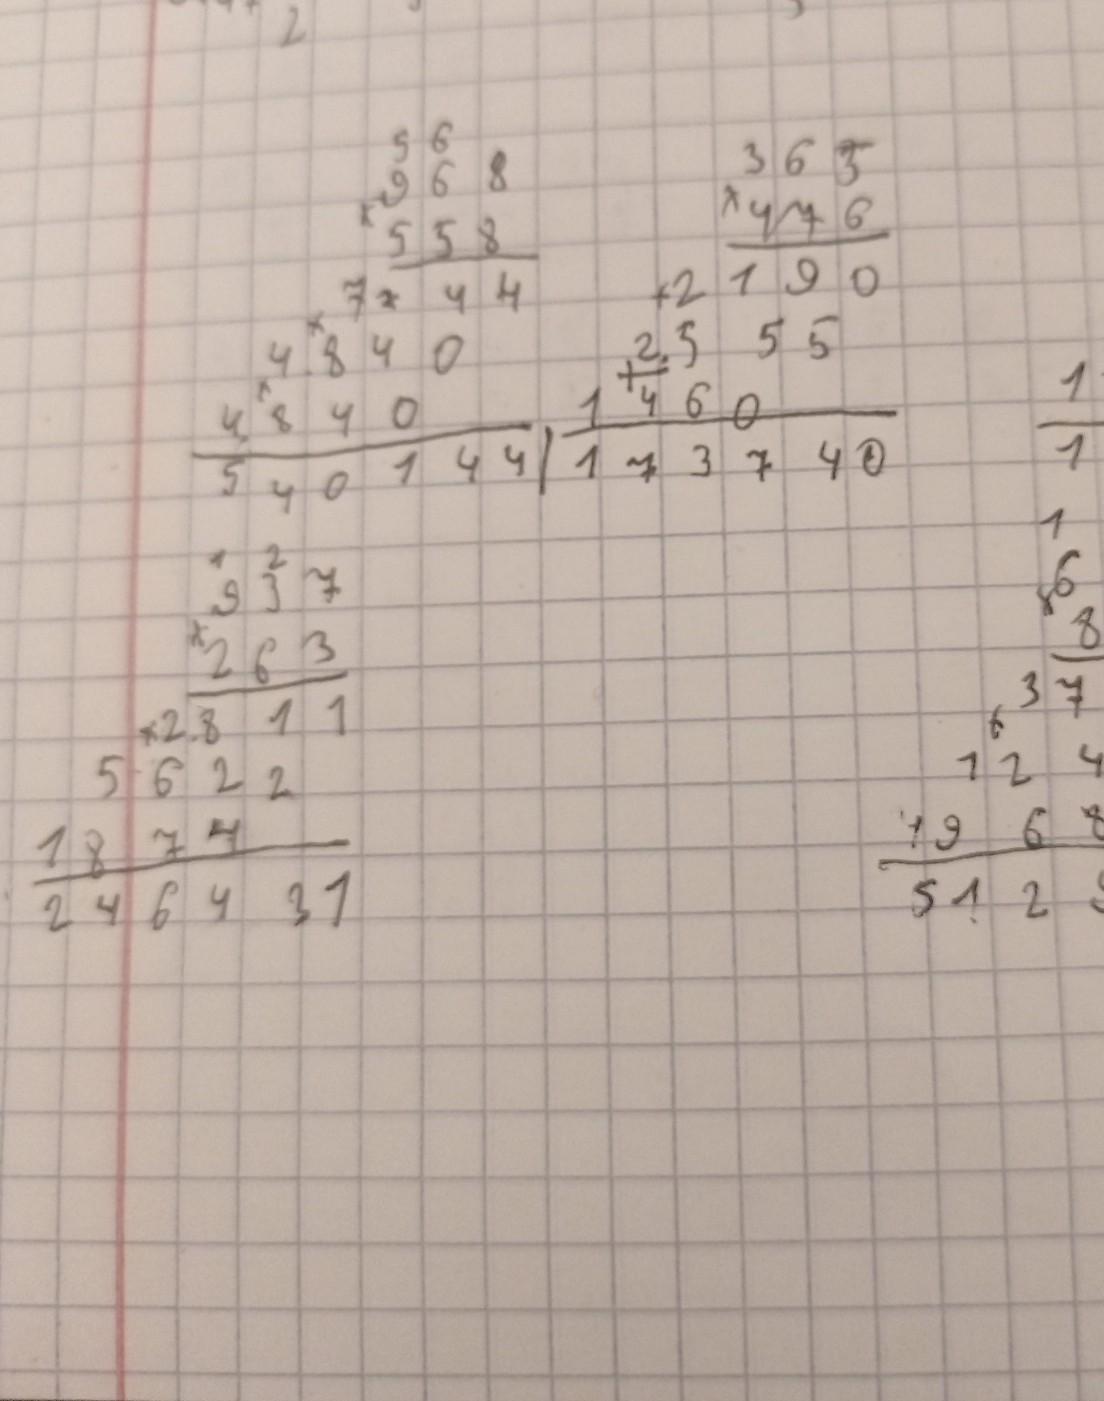 2
5 6
9 6 8
x 5 5 8
7 7 4 4
4 8 4 0
4 8 4 0
5 4 0 1 4 4
3 6 5
x 4 7 6
+2 1 9 0
2 5 5 5
+
1 4 6 0
1 7 3 7 4 0
1 2
9 3 7
x 2 6 3
2 8 1 1
5 6 2 2
1 8 7 4
2 4 6 4 3 1
1
1
1
6
8
3 7
1 2 4
1 9 6 8
5 1 2